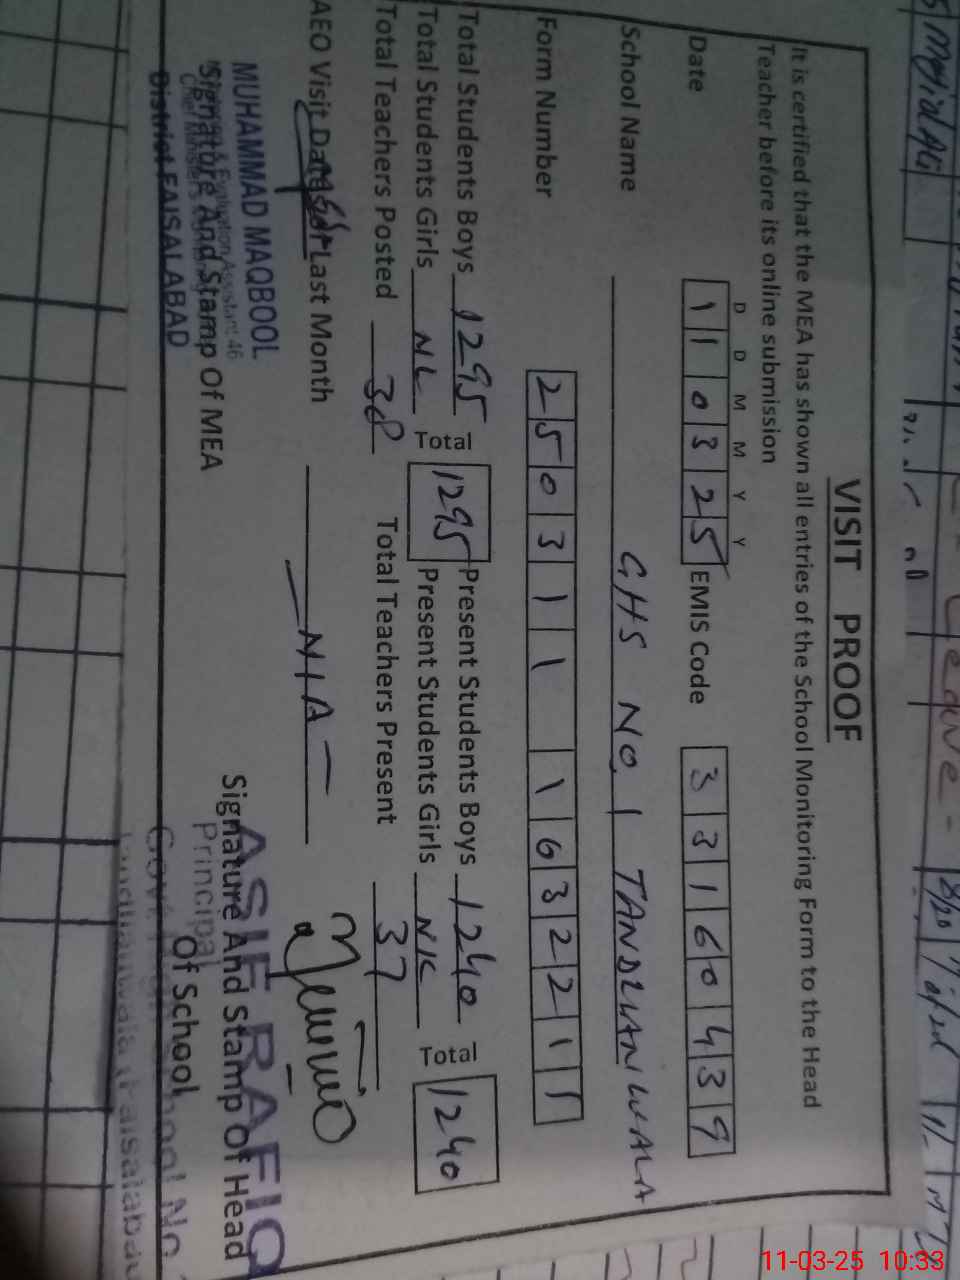 VISIT PROOF
It is certified that the MEA has shown all entries of the School Monitoring Form to the Head
Teacher before its online submission
D D M M Y Y
Date 1 1 0 3 2 5 EMIS Code 3 3 1 6 0 4 3 9
School Name GHS NO. 1 TANDLIANWALA
Form Number 2 5 0 3 1 1 1 6 3 2 2 1 1
Total Students Boys 1295 Total 1295 Present Students Boys 1240 Total 1240
Total Students Girls NL Present Students Girls NL
Total Teachers Posted 38 Total Teachers Present 37
AEO Visit Date For Last Month - N/A -
MUHAMMAD MAQBOOL
Monitoring & Evaluation Assistant 46
Signature And Stamp Of MEA
District FAISALABAD
ASIF RAFIQ
Signature And Stamp Of Head
Principal
Of School
11-03-25 10:33